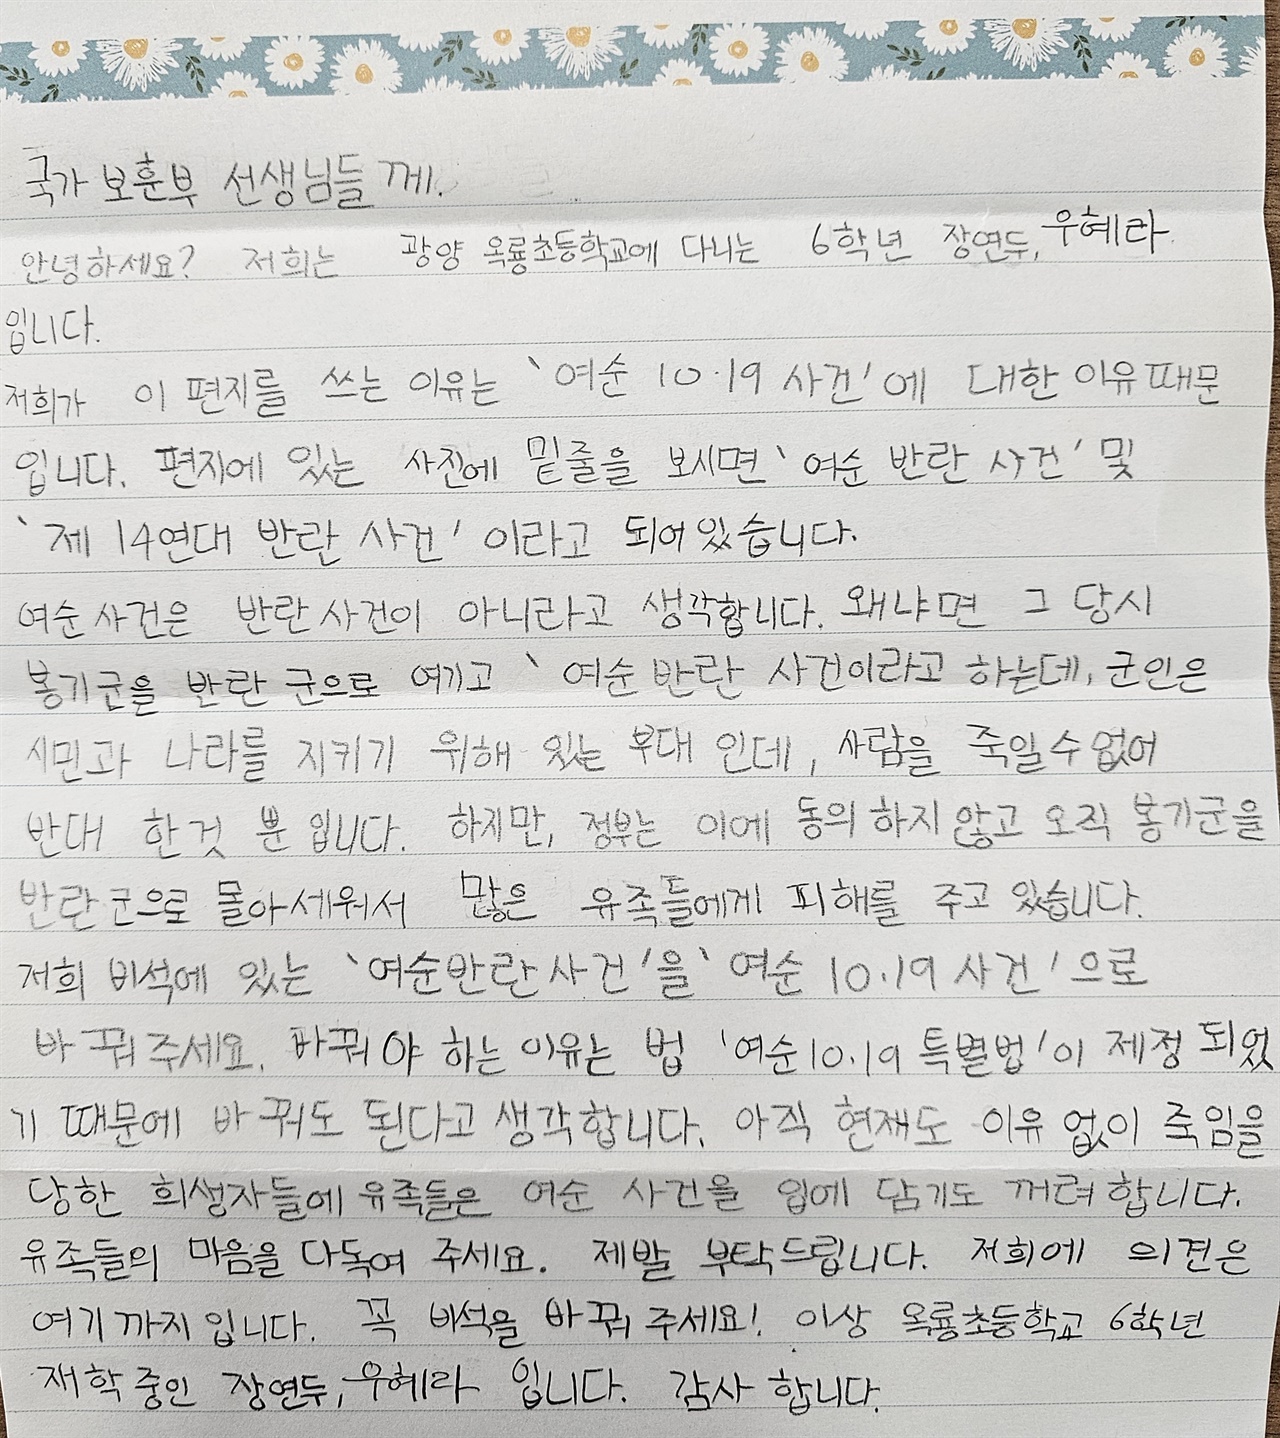 국가 보훈부 선생님들께.
안녕하세요? 저희는 광양 옥룡초등학교에 다니는 6학년 장연두, 우혜라
입니다.
저희가 이 편지를 쓰는 이유는 '여순 10.19 사건'에 대한 이유때문
입니다. 편지에 있는 사진에 밑줄을 보시면 '여순 반란 사건' 및
'제 14연대 반란 사건' 이라고 되어있습니다.
여순사건은 반란사건이 아니라고 생각합니다. 왜냐면 그 당시
봉기군을 반란 군으로 여기고 '여순 반란 사건이라고 하는데, 군인은
시민과 나라를 지키기 위해 있는 부대 인데, 사람을 죽일수없어
반대 한것 뿐입니다. 하지만, 정부는 이에 동의 하지않고 오직 봉기군을
반란군으로 몰아세워서 많은 유족들에게 피해를 주고 있습니다.
저희 비석에 있는 '여순반란사건'을 '여순 10.19 사건'으로
바꿔주세요. 바꿔야 하는 이유는 법 '여순10.19 특별법'이 제정 되었
기 때문에 바꿔도 된다고 생각합니다. 아직 현재도 이유 없이 죽임을
당한 희생자들에 유족들은 여순 사건을 입에 담기도 꺼려합니다.
유족들의 마음을 다독여 주세요. 제발 부탁드립니다. 저희에 의견은
여기까지입니다. 꼭 비석을 바꿔주세요! 이상 옥룡초등학교 6학년
재학 중인 장연두, 우혜라 입니다. 감사 합니다.